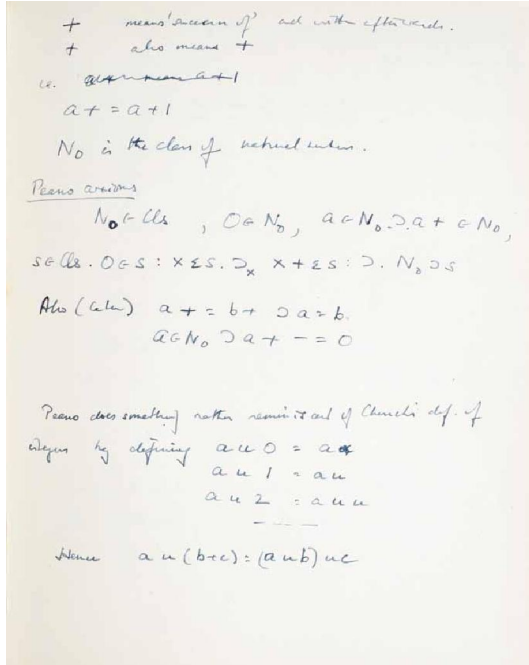 + means 'successor of' and written afterwards.
+ also means +
i.e.
a+ = a+1
N₀ is the class of natural numbers.
Peano axioms
N₀ ε Cls , 0 ε N₀, a ε N₀ .⊃. a+ ε N₀,
s ε Cls . 0 ε s : x ε s . ⊃ₓ x+ ε s : ⊃. N₀ ⊃ s
Also (later) a+ = b+ ⊃ a = b.
a ε N₀ ⊃ a+ - = 0
Peano does something rather reminiscent of Church's def. of
integers by defining a u 0 = a
a u 1 = a u
a u 2 = a u u
- - - -
Hence a u (b+c) = (a u b) u c